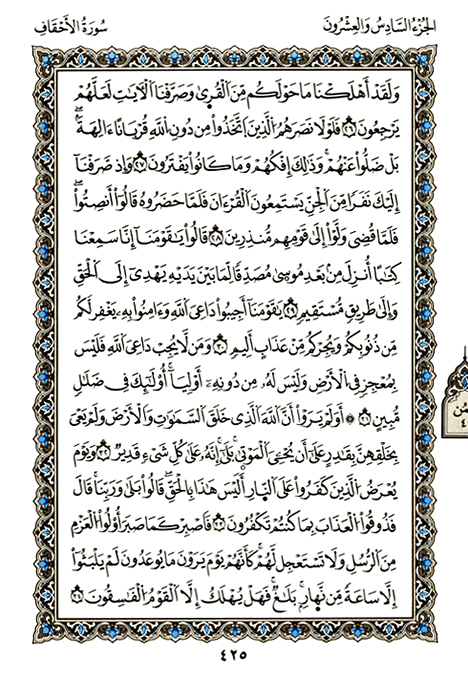 الجزء السادس والعشرون
سورة الأحقاف
ولقد أهلكنا ما حولكم من القرى وصرفنا الآيات لعلهم
يرجعون ٢٧ فلولا نصرهم الذين اتخذوا من دون الله قربانا ءالهة
بل ضلوا عنهم وذلك إفكهم وما كانوا يفترون ٢٨ وإذ صرفنا
إليك نفرا من الجن يستمعون القرءان فلما حضروه قالوا أنصتوا
فلما قضى ولوا إلى قومهم منذرين ٢٩ قالوا يا قومنا إنا سمعنا
كتابا أنزل من بعد موسى مصدقا لما بين يديه يهدى إلى الحق
وإلى طريق مستقيم ٣٠ يقومنا أجيبوا داعى الله وءامنوا به يغفر لكم
من ذنوبكم ويجركم من عذاب أليم ٣١ ومن لا يجب داعى الله فليس
بمعجز في الأرض وليس له من دونه أولياء أولئك فى ضلال
مبين ٣٢ أولم يروا أن الله الذى خلق السموات والأرض ولم يعى
بخلقهن بقدر على أن يحى الموتى بلى إنه على كل شىء قدير ٣٣ ويوم
يعرض الذين كفروا على النار أليس هذا بالحق قالوا بلى وربنا قال
فذوقوا العذاب بما كنتم تكفرون ٣٤ فاصبر كما صبر أولوا العزم
من الرسل ولا تستعجل لهم كأنهم يوم يرون ما يوعدون لم يلبثوا
إلا ساعة من نهار بلاغ فهل يهلك إلا القوم الفاسقون ٣٥
٤٢٥